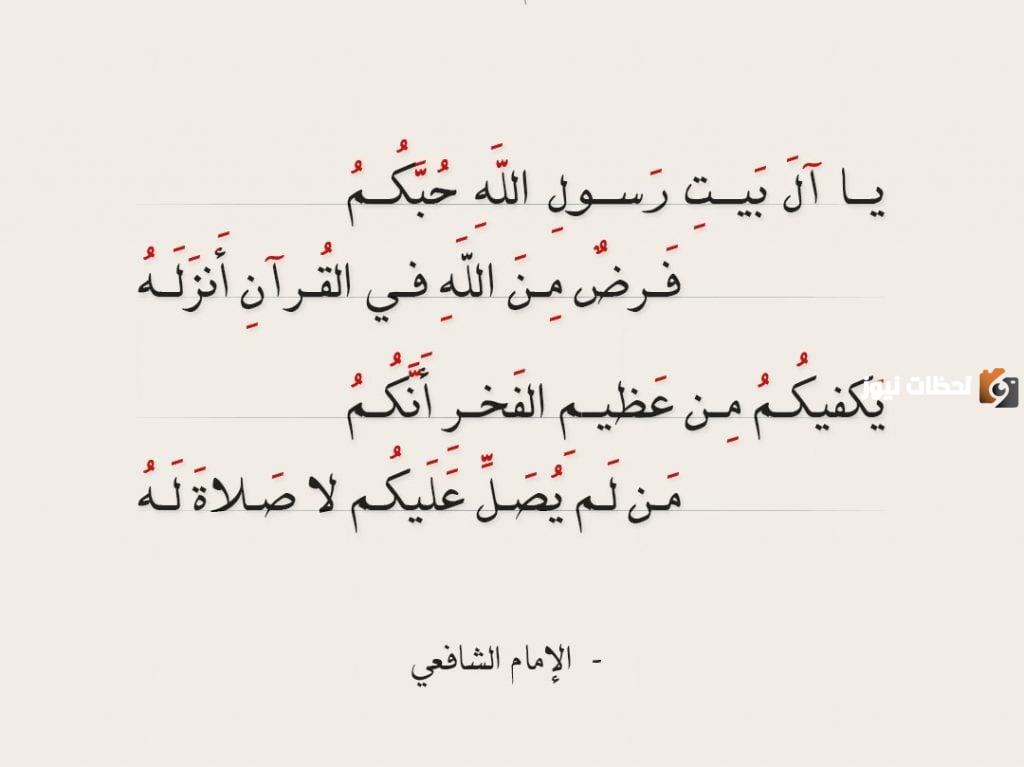 يا آلَ بَيتِ رَسولِ اللَهِ حُبَّكُمُ
فَرضٌ مِنَ اللَهِ في القُرآنِ أَنزَلَهُ
يَكفيكُمُ مِن عَظيمِ الفَخرِ أَنَّكُمُ
مَن لَم يُصَلِّ عَلَيكُم لا صَلاةَ لَهُ
- الإمام الشافعي
لحظات نيوز